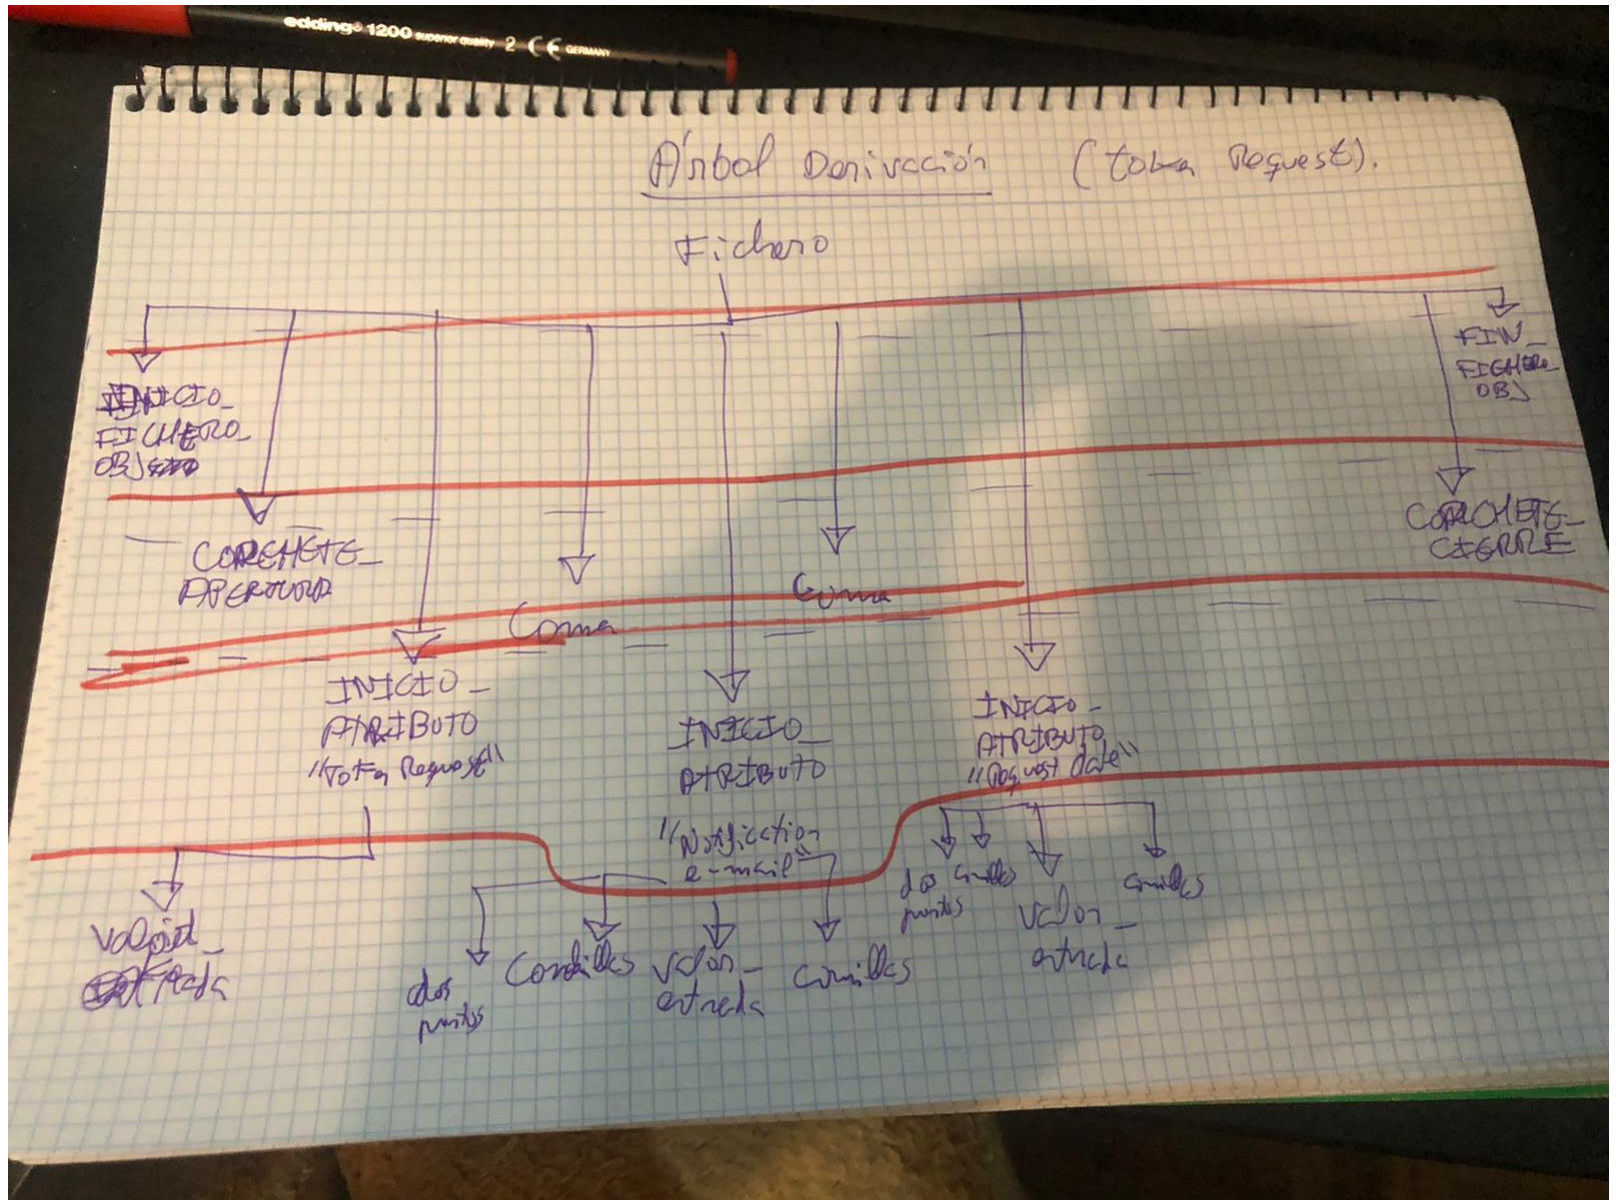 edding® 1200 superior quality 2 CE GERMANY
Árbol Derivación (token Request).
Fichero
INICIO_
FICHERO_
OBJ
FIN_
FICHERO_
OBJ
CORCHETE_
APERTURA
CORCHETE_
CIERRE
Coma
Coma
INICIO_
ATRIBUTO
"Token Request"
INICIO_
ATRIBUTO
"Notification
e-mail"
INICIO_
ATRIBUTO
"Request date"
dos
puntos
comillas
valor_
entrada
comillas
dos
puntos
comillas
valor_
entrada
comillas